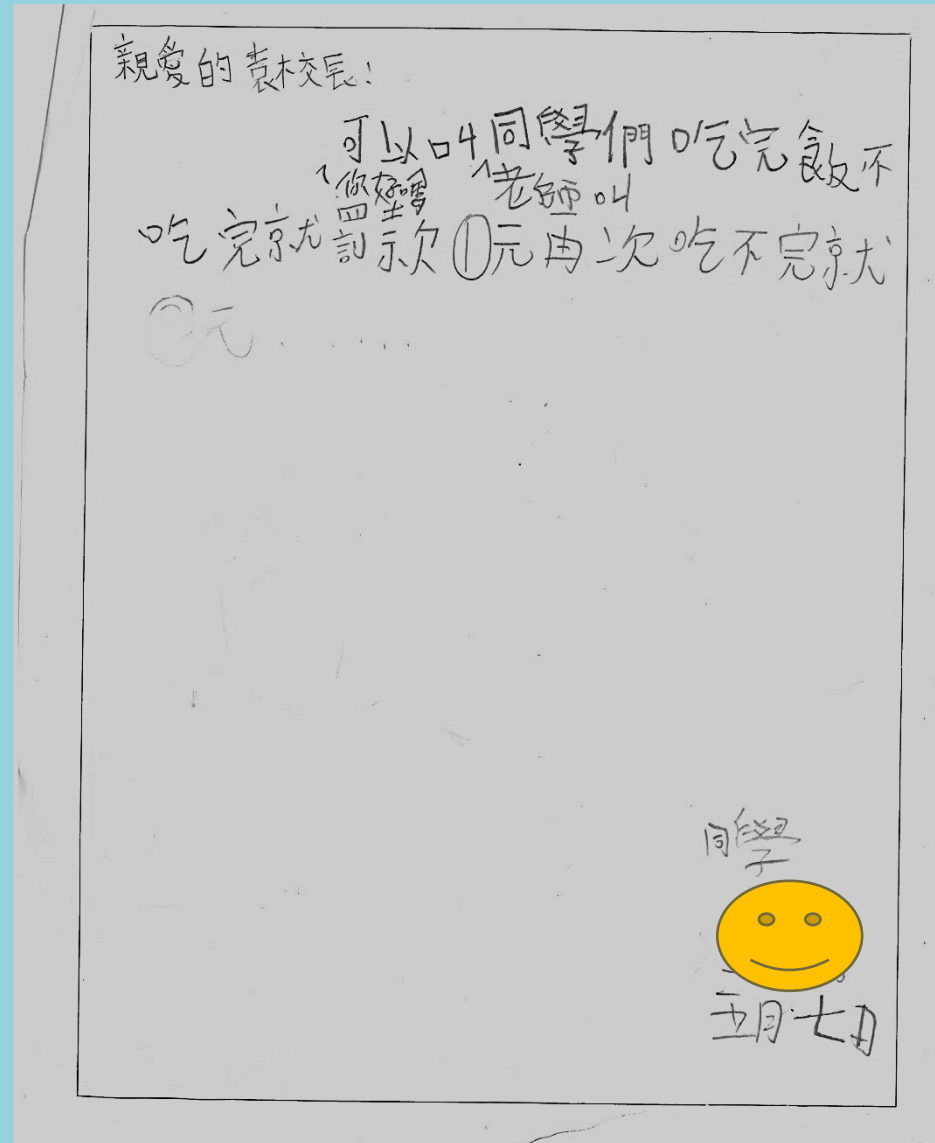 親愛的袁校長：
可以叫同學們吃完飯不
^您好嗎 ^老師叫
吃完就罰款①元再次吃不完就
②元......
同學
五月七日